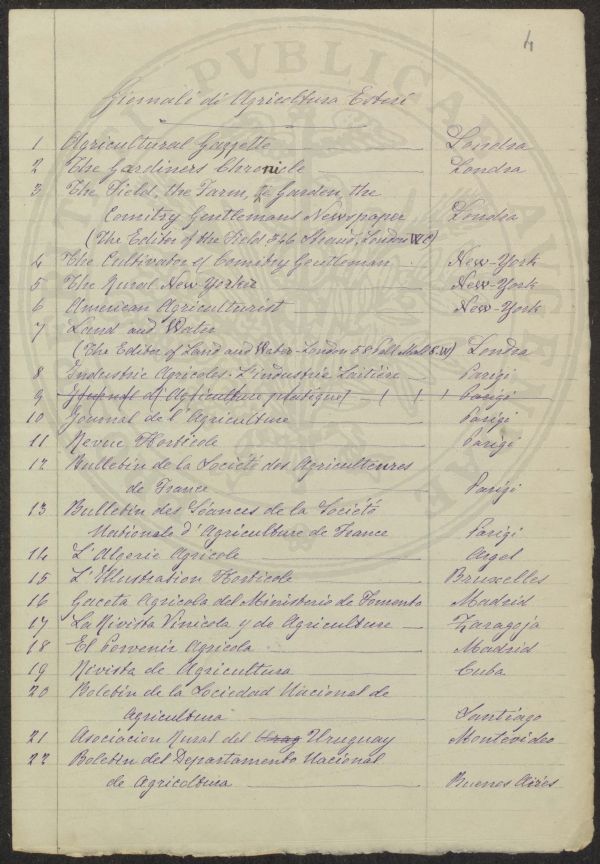 4
Giornali di Agricoltura Esteri
1 Agricultural Gazzette Londra
2 The Gardiners Chronicle Londra
3 The Field, the Farm, the Garden, the
Comitry Gentlemans Newspaper Londra
(The Editor of the Field 346 Strand, London W C)
4 The Cultivator & Comitry Gentleman New-York
5 The Rural New Yorker New-York
6 American Agriculturist New-York
7 Land and Water
(The Editor of Land and Water - London 58 Pall Mall S.W) Londra
8 Industrie Agricoles - L'industrie Laitière Parigi
9 Journal d'Agriculture pratique Parigi
10 Journal de l'Agriculture Parigi
11 Revue Horticole Parigi
12 Bulletin de la Société des Agriculteures
de France Parigi
13 Bulletin des Séances de la Société
Nationale d'Agriculture de France Parigi
14 L'Algerie Agricole Argel
15 L'Illustration Horticole Bruxelles
16 Gaceta Agricola del Ministerio de Fomento Madrid
17 La Rivista Vinicola y de Agriculture Zaragoja
18 El Porvenir Agricola Madrid
19 Rivista de Agricultura Cuba
20 Boletin de la Sociedad Nacional de
Agricultura Santiago
21 Asociacion Rural del Urag Uruguay Montevideo
22 Boletin del Departamento Nacional
de Agricoltura Buenos Aires